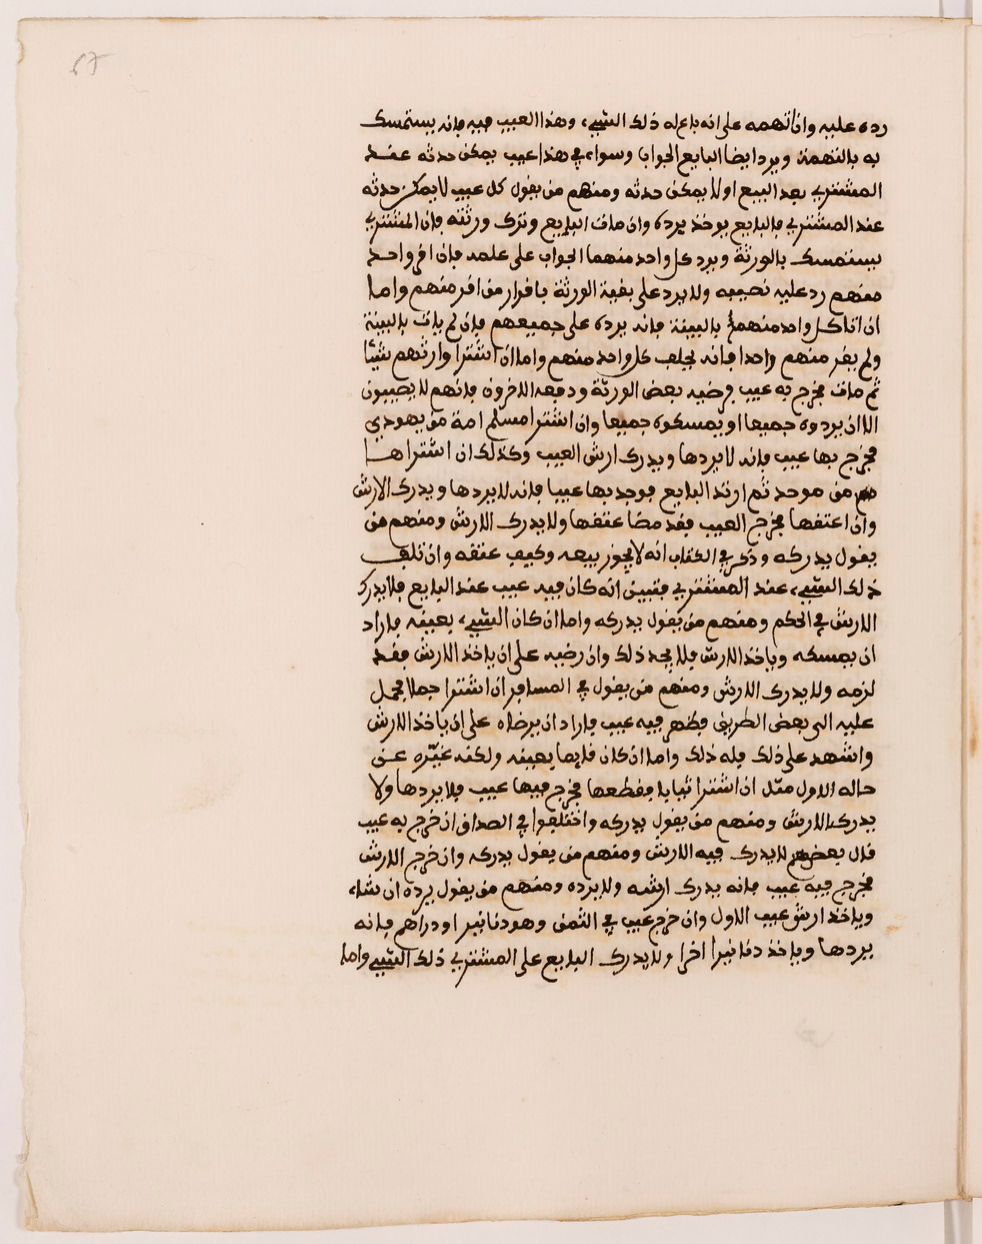 67
رده عليه وان اتهمه على انه باع له ذلك الشيء، وهذا العيب فيه فانه يستمسك
به بالتهمة ويرد ايضا البايع الجواب وسواء في هذا عيب يمكن حدثه عند
المشتري بعد البيع او لا يمكن حدثه ومنهم من يقول كل عيب لا يمكن حدثه
عند المشتري فالبايع يوخذ برده وان مات البايع وترك ورثته فان المشتري
يستمسك بالورثة ويرد كل واحد منهما الجواب على علمه فان اقر واحد
منهم رد عليه نصيبه ولا يرد على بقية الورثة باقرار من اقر منهم واما
ان اتا كل واحد منهم بالبينة فانه يرده على جميعهم فان لم يات بالبينة
ولم يقر منهم واحدا فانه يحلف كل واحد منهم واما ان اشترا وارثهم شيئا
ثم مات فخرج به عيب فرضيه بعض الورثة ودفعه الاخرون فانهم لا يصيبون
الا ان يردوه جميعا او يمسكوه جميعا وان اشترا مسلم امة من يهودي
فخرج بها عيب فانه لا يردها ويدرك ارش العيب وكذلك ان اشتراها
من موحد ثم ارتد البايع فوجد بها عيبا فانه لا يردها ويدرك الارش
وان اعتقها فخرج العيب فقد مضا عتقها ولا يدرك الارش ومنهم من
يقول يدركه وذكر في الكتاب انه لا يجوز بيعه وكيف عتقه وان تلف
ذلك الشيء، عند المشتري فتبين انه كان فيه عيب عند البايع فلا يدرك
الارش في الحكم ومنهم من يقول يدركه واما ان كان الشيء، بعينه فاراد
ان يمسكه وياخذ الارش فلا يجد ذلك وان رضيه على ان ياخذ الارش فقد
لزمه ولا يدرك الارش ومنهم من يقول في المسافر ان اشترا جملا فحمل
عليه الى بعض الطريق فظهر فيه عيب فاراد ان يرضاه على ان ياخذ الارش
واشهد على ذلك فله ذلك واما ان كان قايما بعينه ولكنه غيّره عن
حاله الاول مثل ان اشترا ثيابا فقطعها فخرج فيها عيب فلا يردها ولا
يدرك الارش ومنهم من يقول يدركه واختلفوا في الصداق ان خرج به عيب
قال بعضهم لا يدرك فيه الارش ومنهم من يقول يدركه وان خرج الارش
فخرج فيه عيب فانه يدرك ارشه ولا يرده ومنهم من يقول يرده ان شاء،
وياخذ ارش عيب الاول وان خرج عيب في الثمن وهو دنانير او دراهم فانه
يردها وياخذ دنانيرا اخرا ولا يدرك البايع على المشتري ذلك الشيء واما